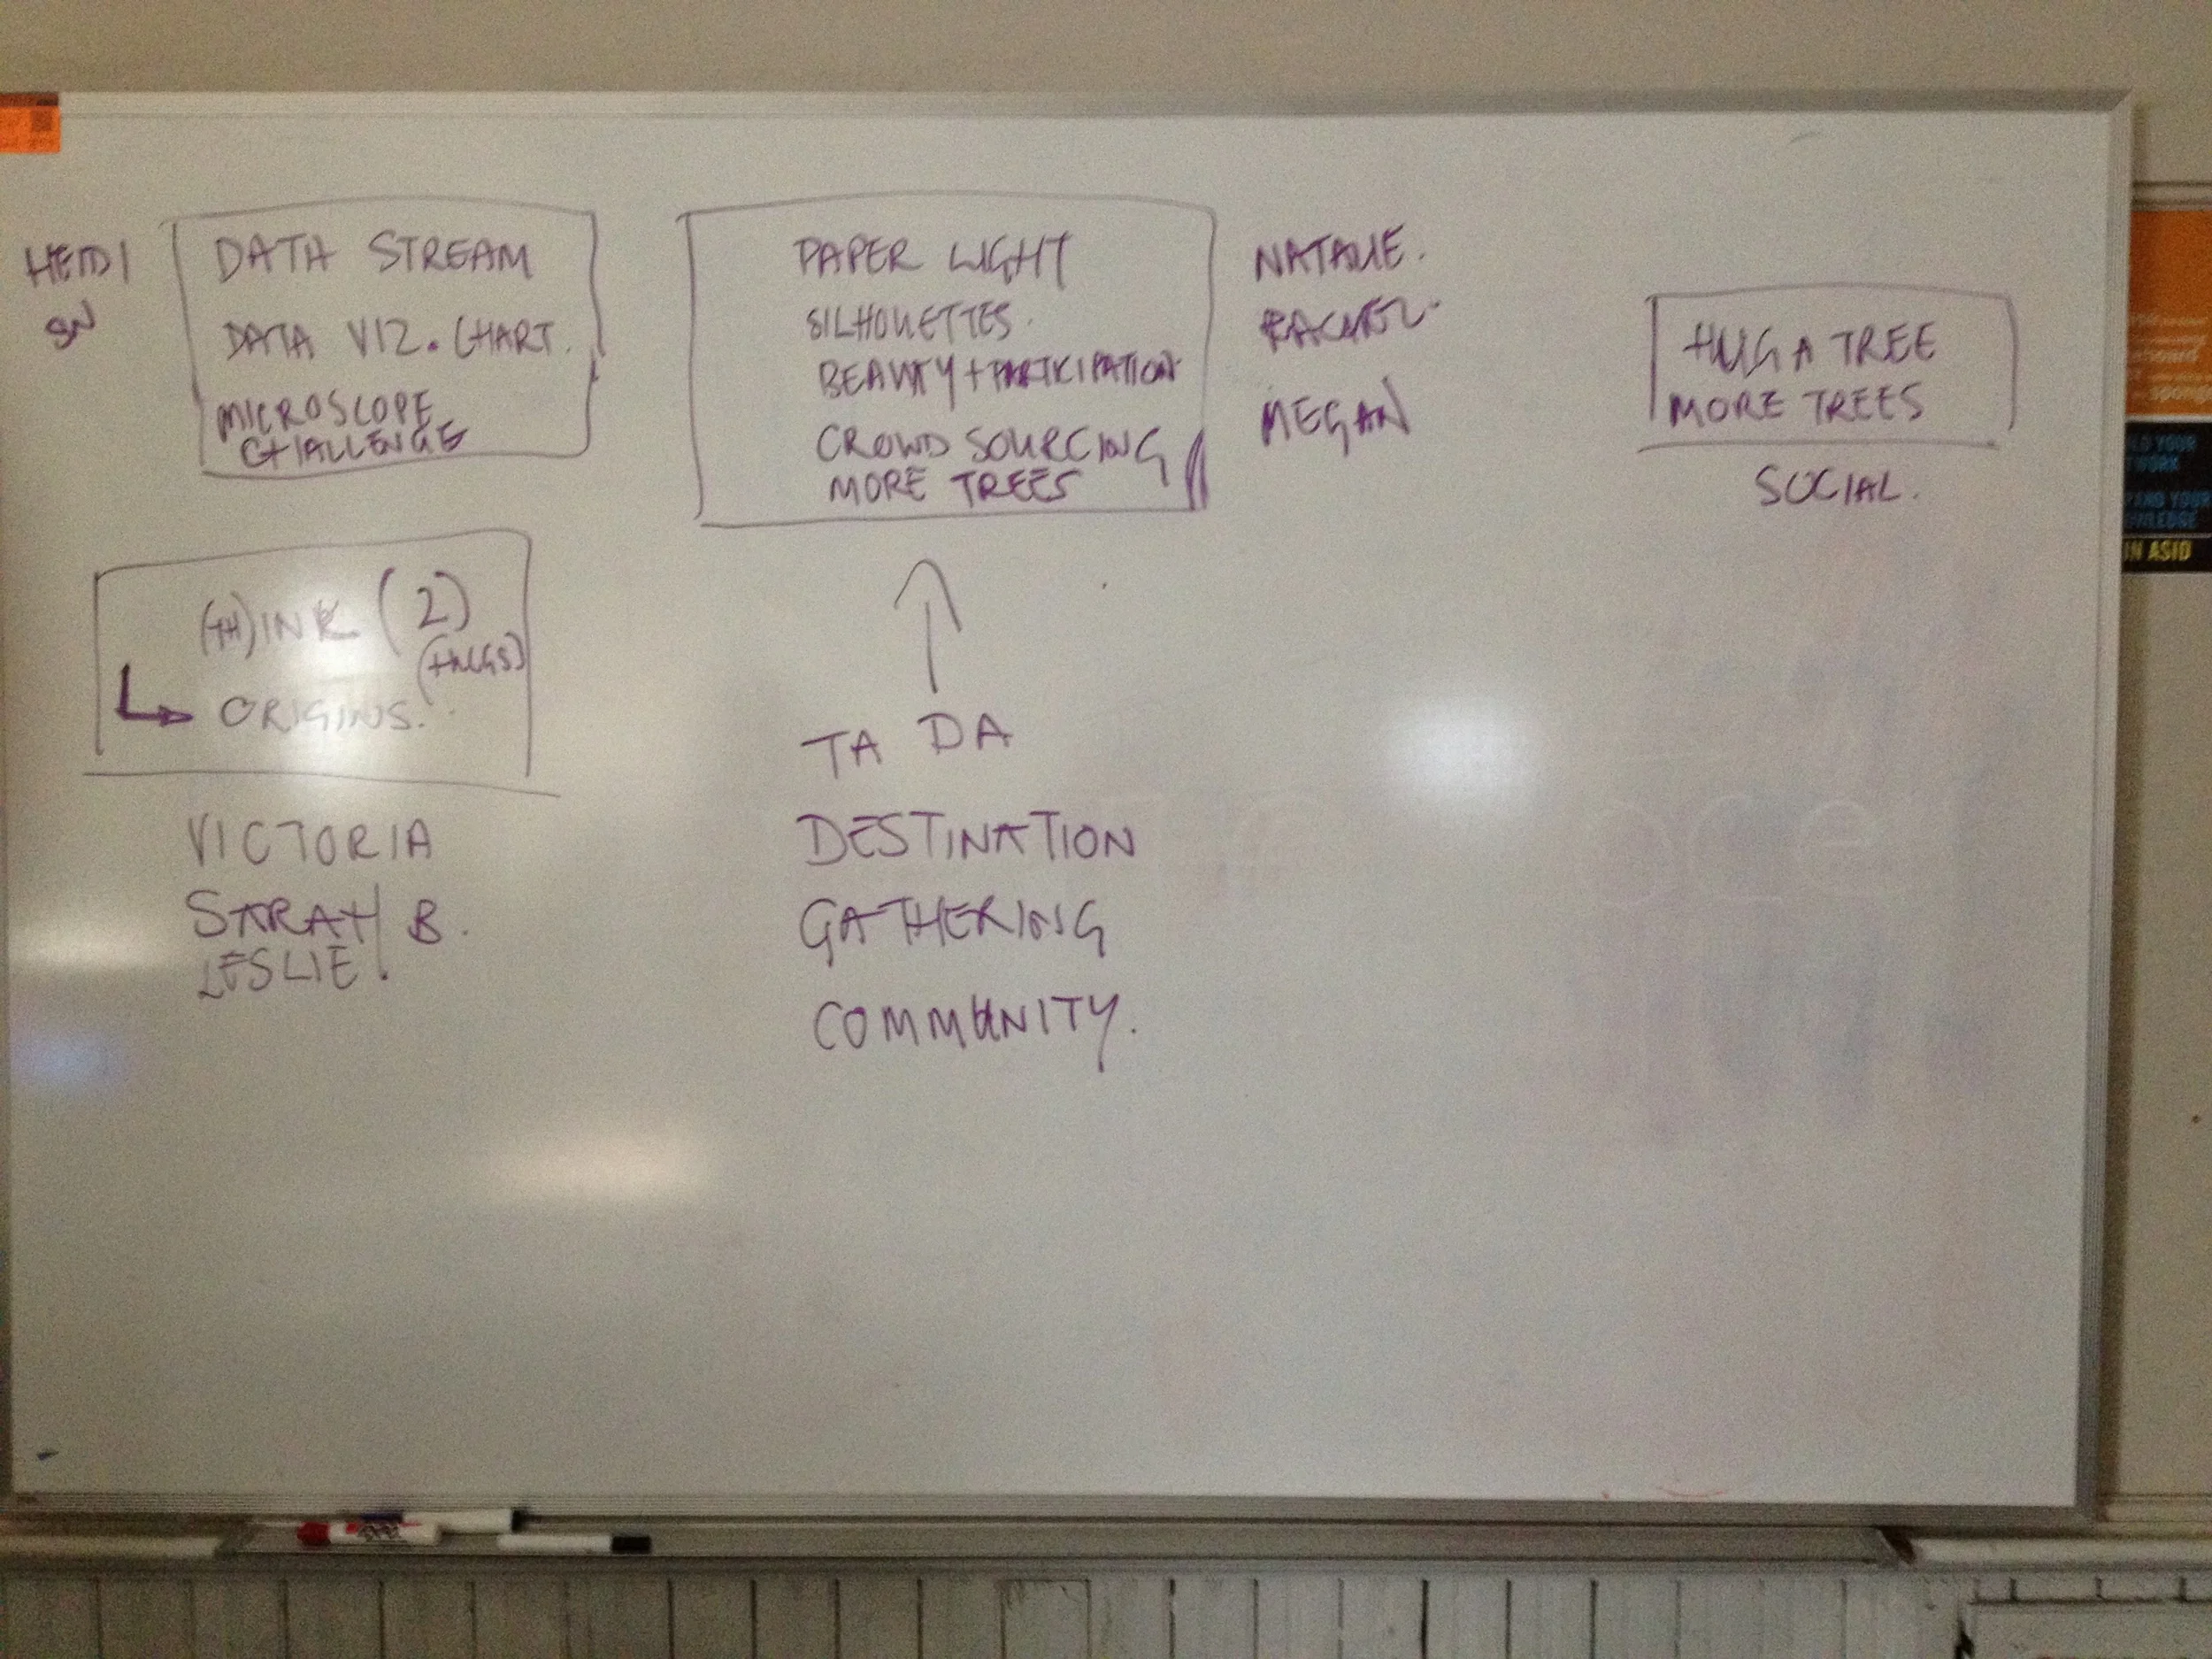 HEIDI
SN
DATA STREAM
DATA VIZ. CHART.
MICROSCOPE
CHALLENGE
PAPER LIGHT
SILHOUETTES.
BEAUTY + PARTICIPATION
CROWD SOURCING
MORE TREES
NATALIE.
RACHEL.
MEGAN
HUG A TREE
MORE TREES
SOCIAL.
(TH)INK (2)
(HUGS)
ORIGINS.
VICTORIA
SARAH B.
LESLIE.
TA DA
DESTINATION
GATHERING
COMMUNITY.
IN ASID